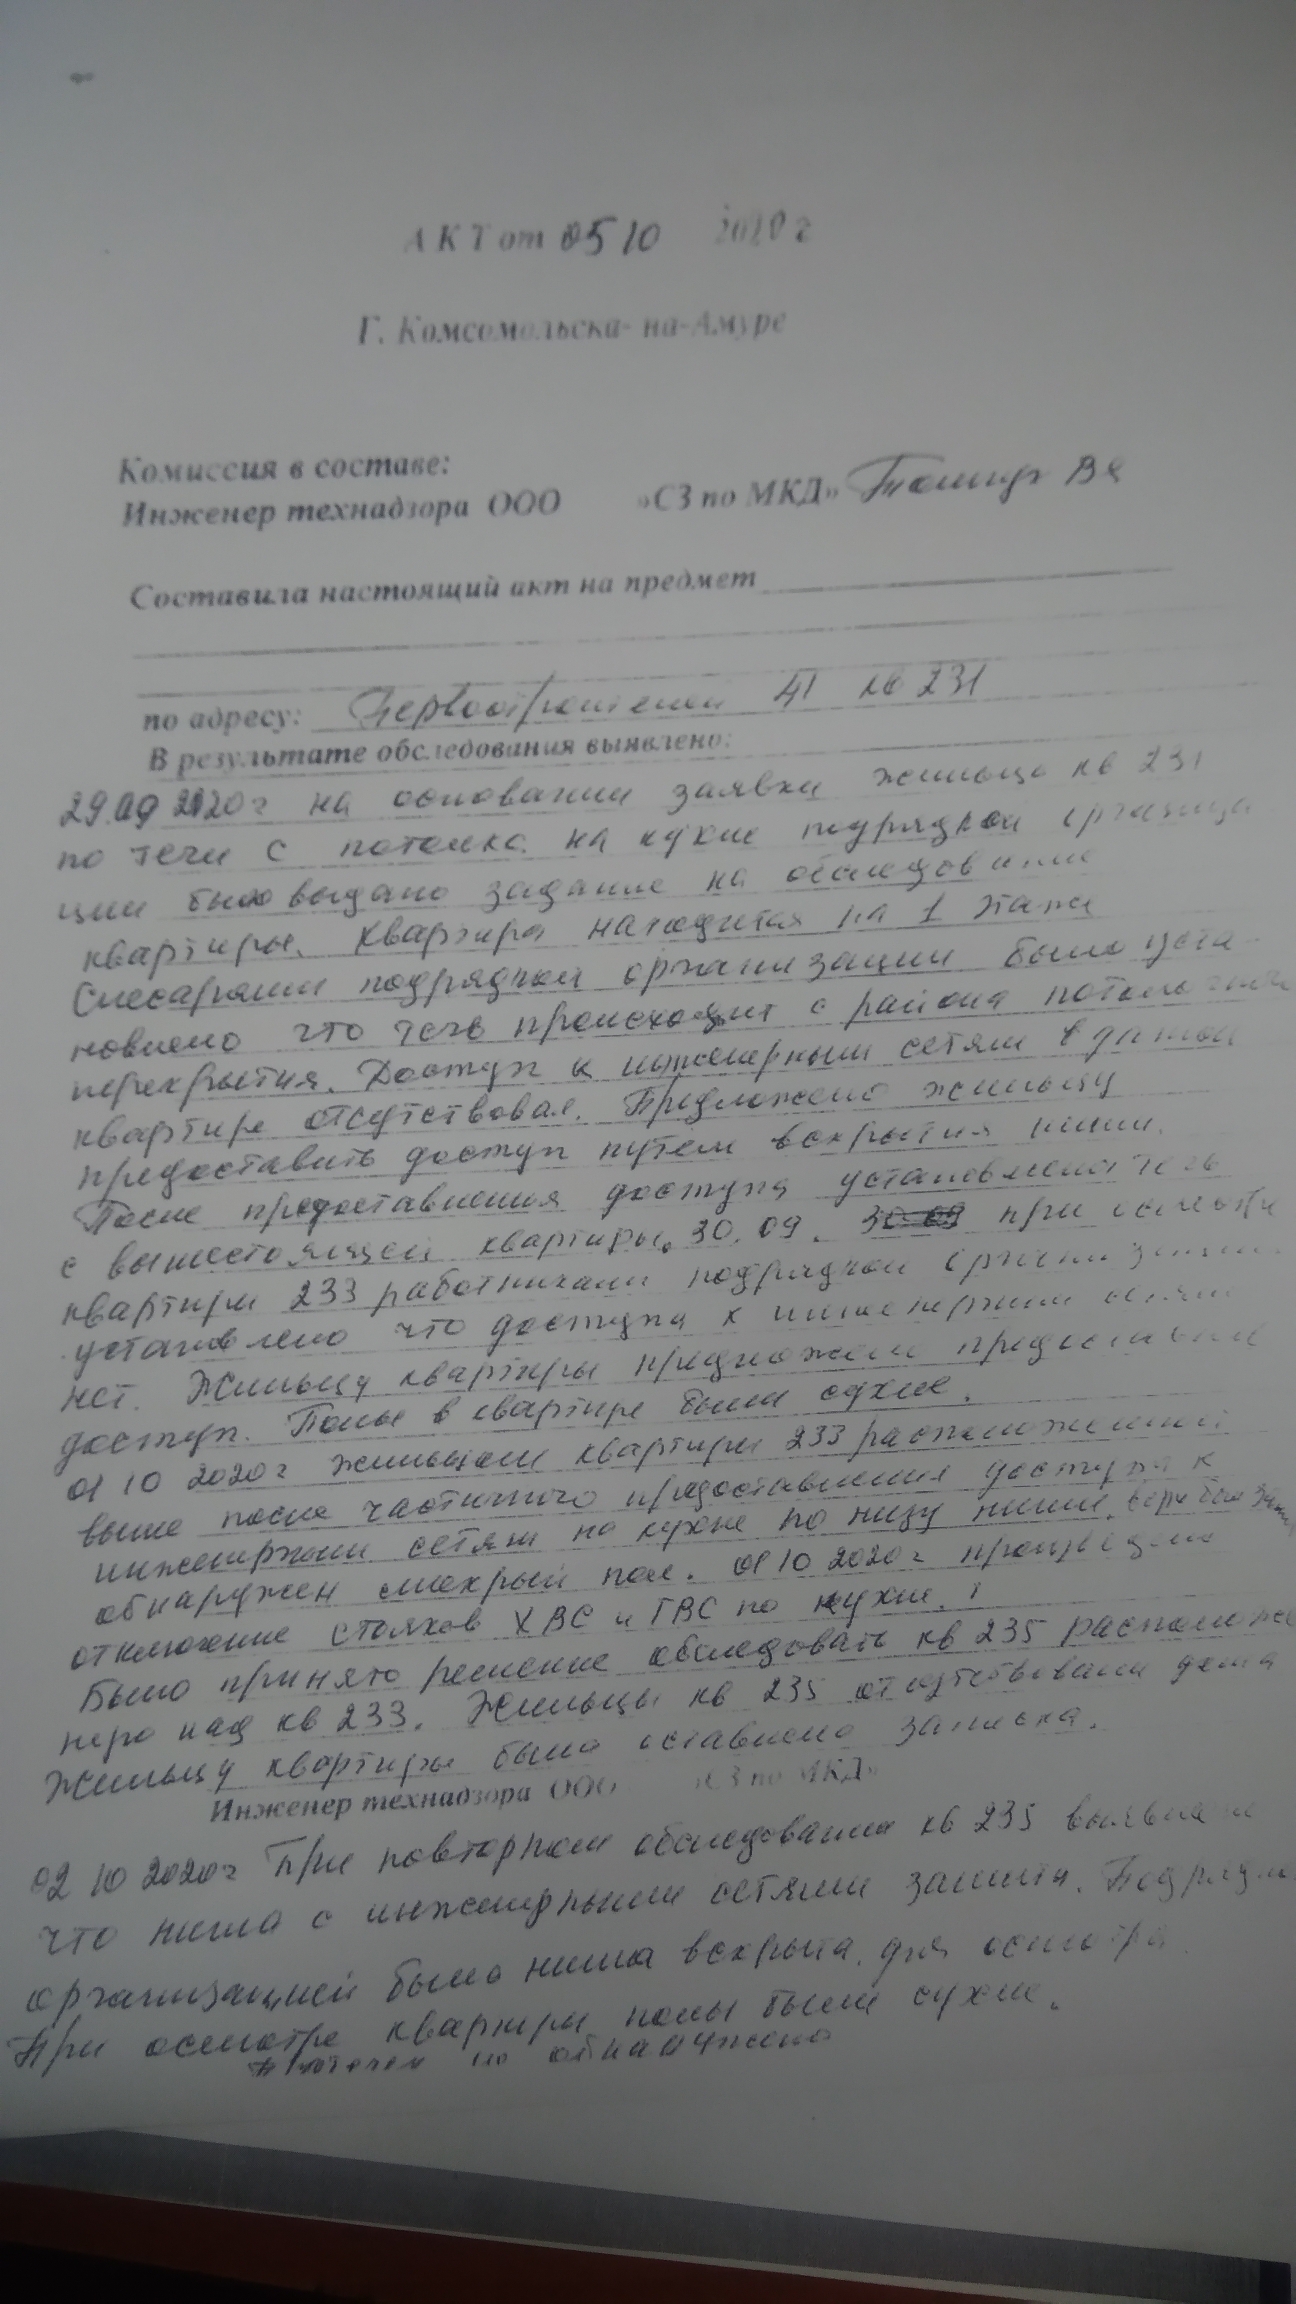 АКТ от 05 10 2020 г
Г. Комсомольска- на-Амуре
Комиссия в составе:
Инженер технадзора ООО »СЗ по МКД»
Составила настоящий акт на предмет
по адресу: Первостроителей 41 кв 231
В результате обследования выявлено:
29.09 2020 г на основании заявки жильца кв 231
по течи с потолка на кухне подрядной организа
ции было выдано задание на обследование
квартиры. Квартира находится на 1 этаже
Слесарями подрядной организации было уста-
новлено что течь происходит с района потолочного
перекрытия. Доступ к инженерным сетям в данной
квартире отсутствовал. Предложено жильцу
предоставить доступ путем вскрытия ниши.
После предоставления доступа установлена течь
с вышестоящей квартиры. 30.09. 30 09 при осмотре
квартиры 233 работниками подрядной организации
установлено что доступа к инженерным сетям
нет. Жильцу квартиры предложено предоставить
доступ. Полы в квартире были сухие.
01 10 2020 г жильцам квартиры 233 расположенной
выше после частичного предоставления доступа к
инженерным сетям на кухне по низу ниши
обнаружен мокрый пол. 01 10 2020 г произведено
отключение стояков ХВС и ГВС по кухне.
Было принято решение обследовать кв 235 располо
над кв 233. Жильцы кв 235 отсутствовали дома
Жильцу квартиры была оставлена записка.
Инженер технадзора ООО «СЗ по МКД»
02 10 2020 г При повторном обследовании кв 235 выявлено
что ниша с инженерными сетями зашита. Подрядной
организацией была ниша вскрыта для осмотра.
При осмотре квартиры полы были сухие.
не обнаружено